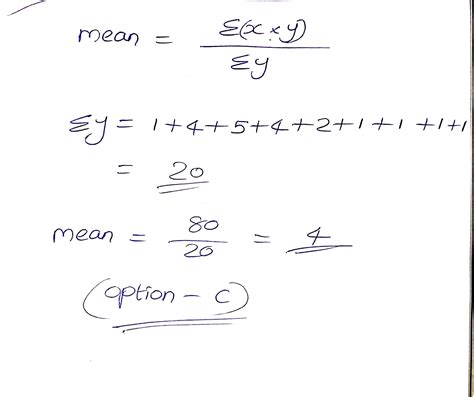 mean = Σ(x × y) / Σy
Σy = 1+4+5+4+2+1+1+1+1
= 20
mean = 80/20 = 4
(option - C)